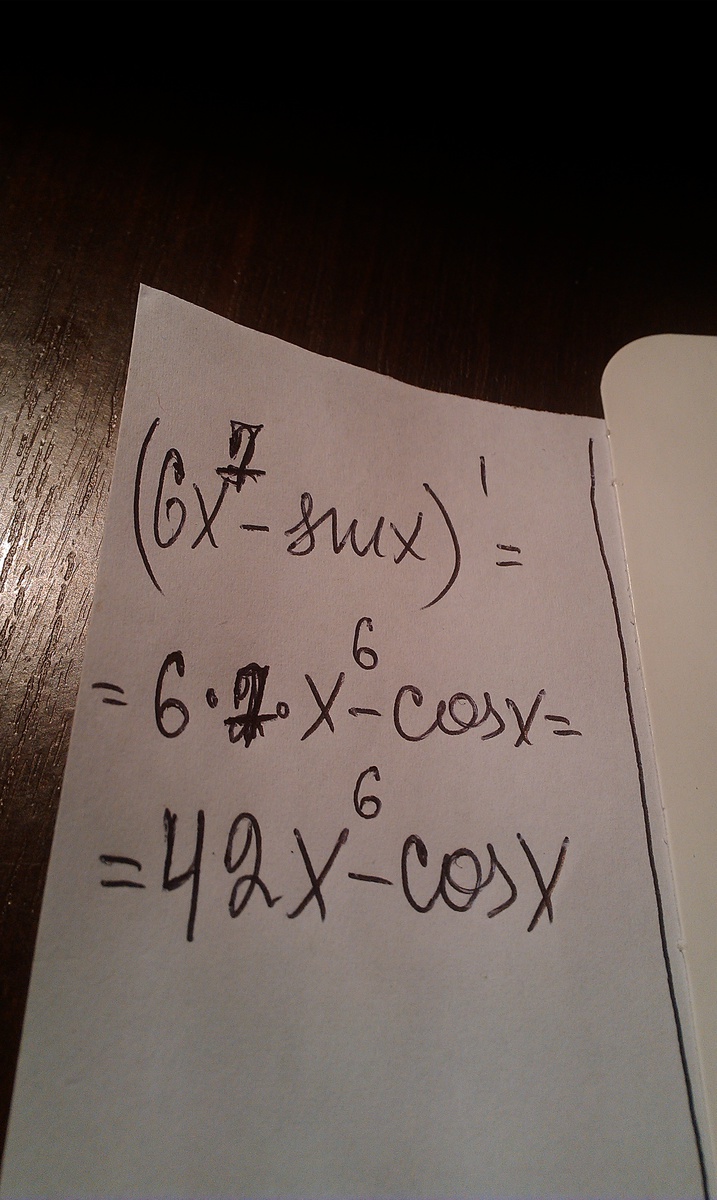 (6x⁷ - sin x)' =
= 6 · 7 · x⁶ - cos x =
= 42x⁶ - cos x